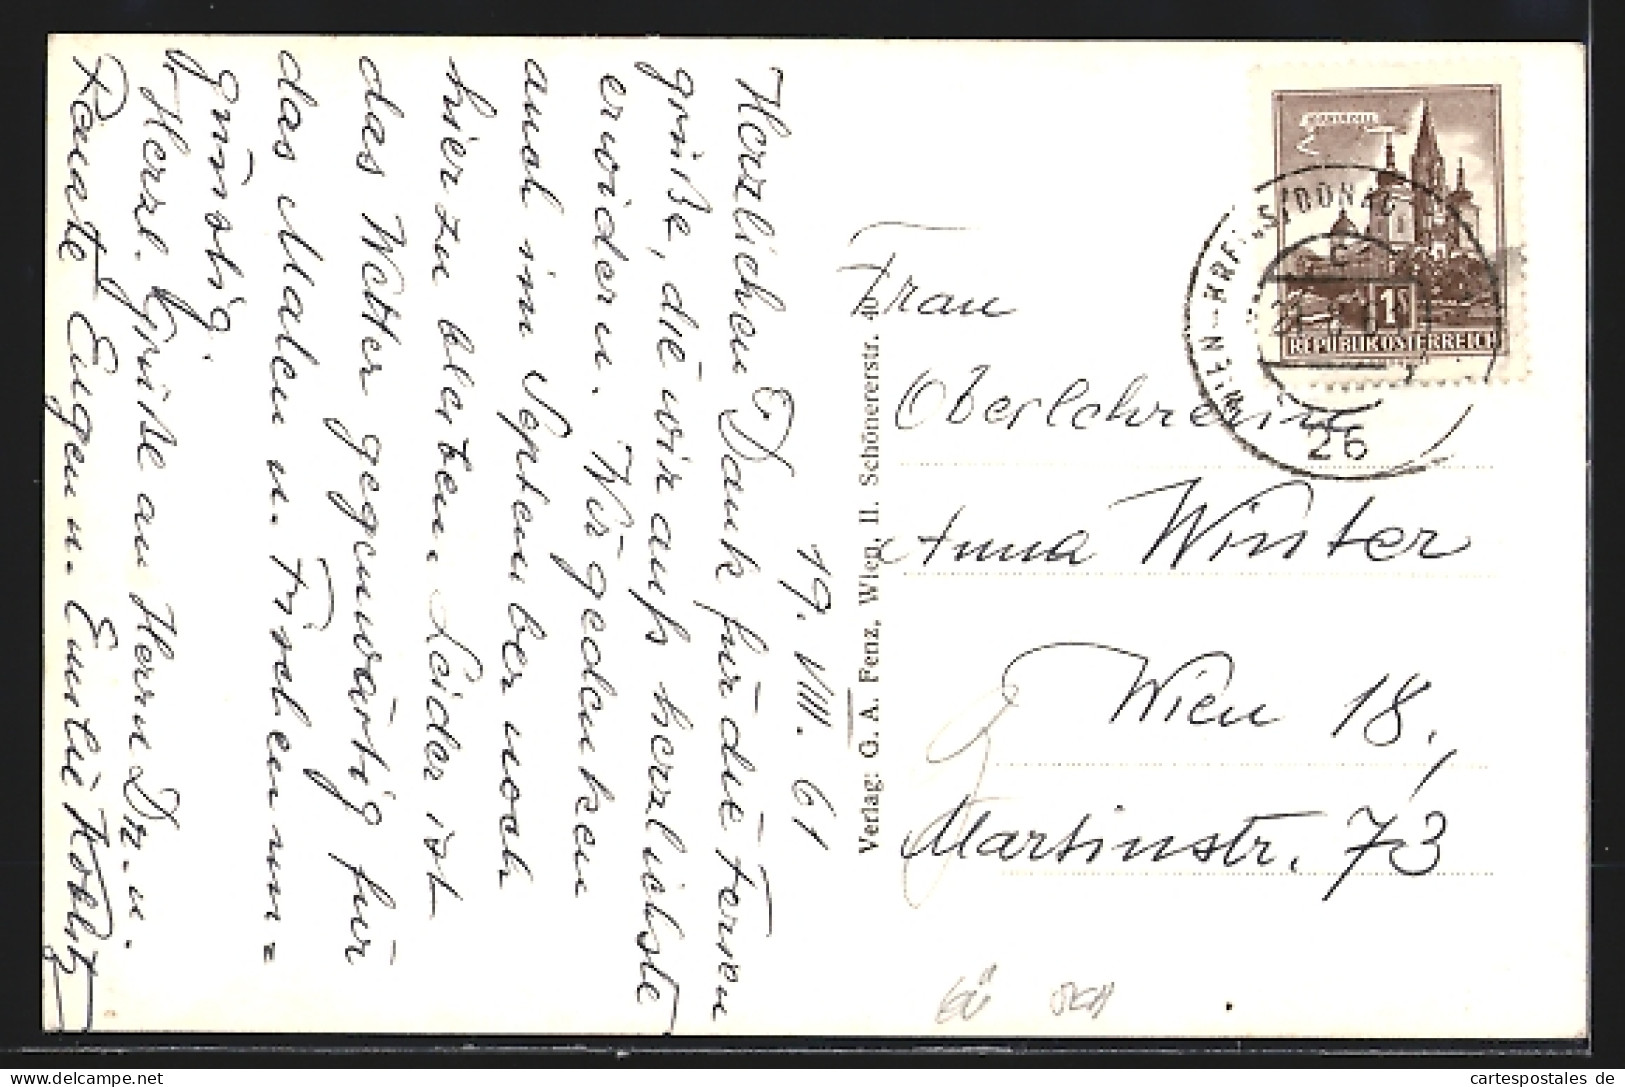 19. VIII. 61
Herzlichen Dank für die Ferien
grüße, die wir aufs herzlichste
erwidern. Wir gedenken
auch im September noch
hier zu bleiben. Leider ist
das Wetter gegenwärtig für
das Malen u. Fischen un=
günstig.
Herzl. Grüße an Herrn Dr. u.
Renate Eugen u. Emilie
Verlag: G. A. Fenz, Wien, II. Schönererstr. 40
MARIAZELL
1S
REPUBLIK ÖSTERREICH
26
Frau
Oberlehrerin
Anna Winter
Wien 18.,
Martinstr. 73
cartespostales de